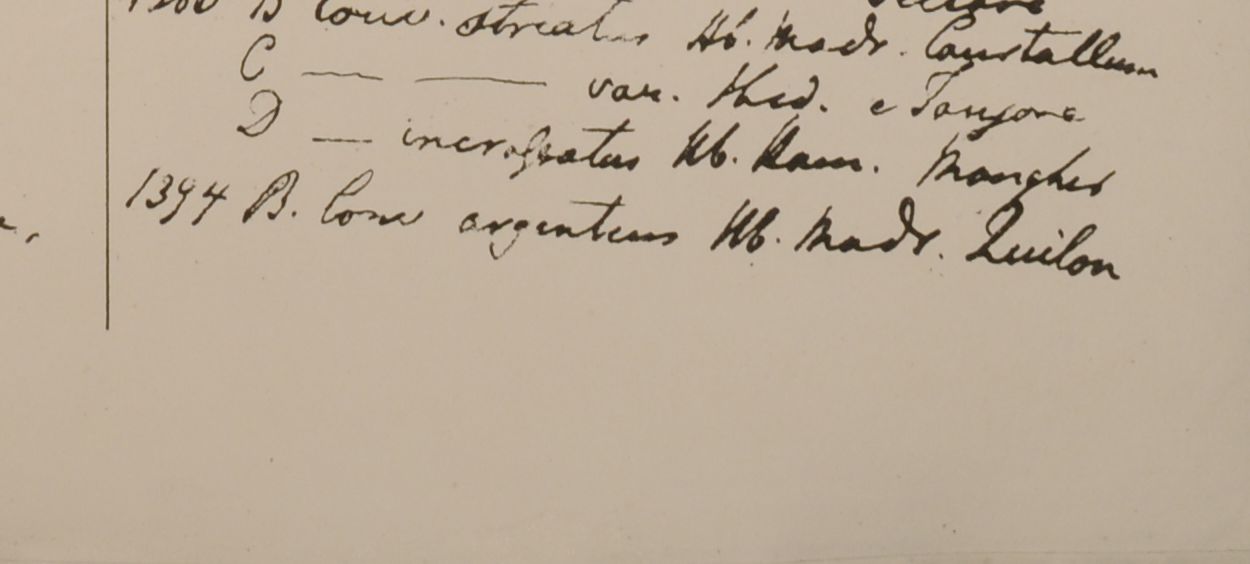 B Conv. striatus Hb. Madr. Courtallum
C — — var. Ibid. e Tanjore
D — incrassatus Hb. Ham. Monghir
1394 B. Conv argenteus Hb. Madr. Quilon